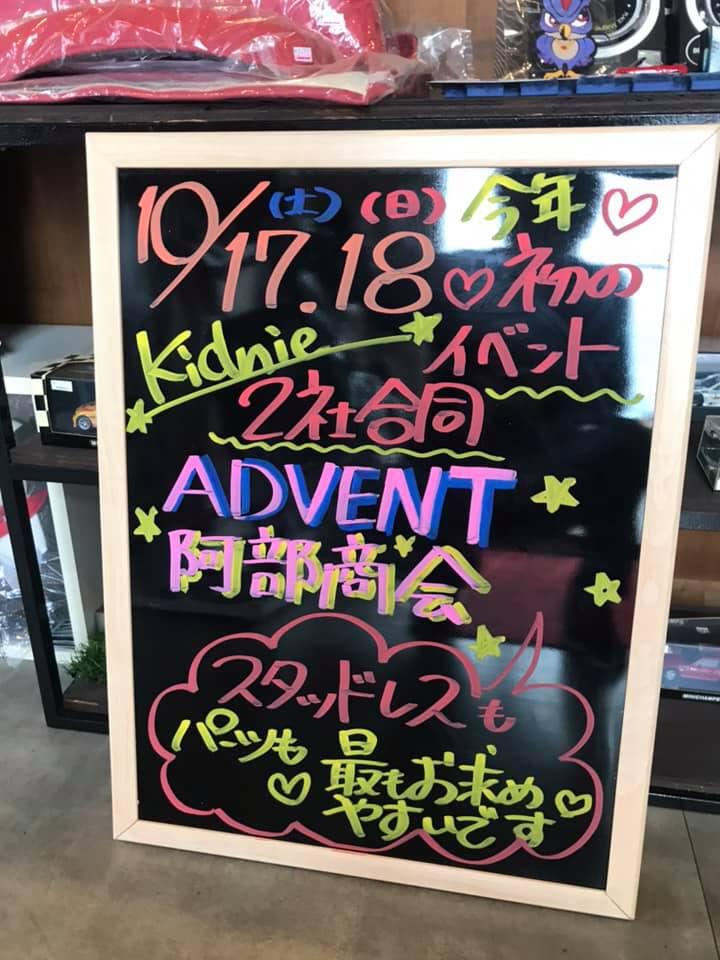 10/17.18 (土)(日) 今年♡
♡初の
Kidnie イベント
2社合同
ADVENT
阿部商会
スタッドレスも
パーツも 最もお求め
♡ やすいです♡